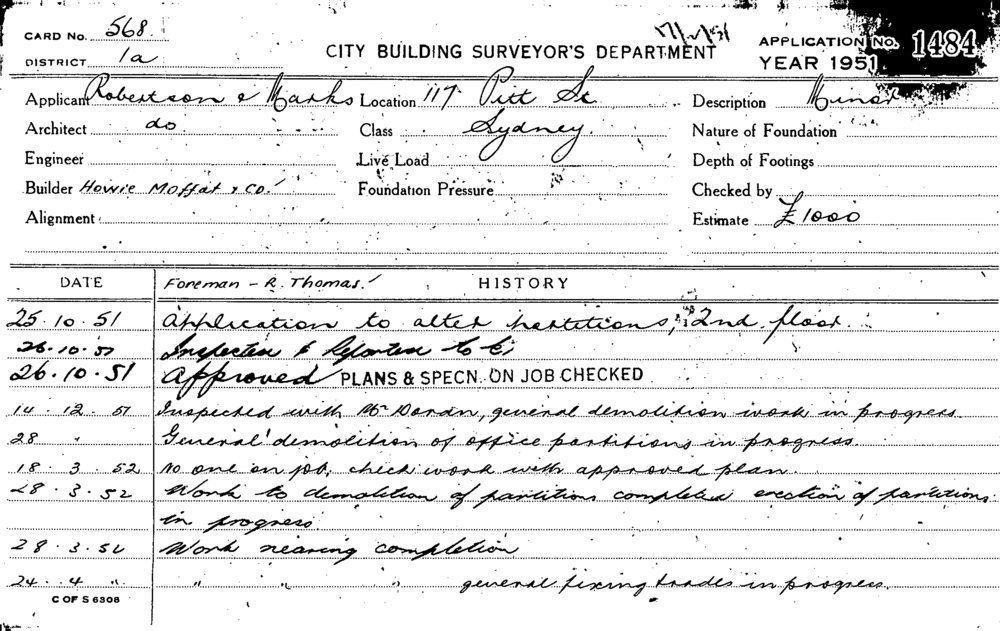 CARD No. 568.
DISTRICT 1a
CITY BUILDING SURVEYOR'S DEPARTMENT
APPLICATION No. 1484
YEAR 1951
Applicant Robertson & Marks Location 117 Pitt St. Description Minor
Architect do Class Sydney. Nature of Foundation
Engineer Live Load Depth of Footings
Builder Howie Moffat & Co. Foundation Pressure Checked by
Alignment Estimate £1000
DATE Foreman - R. Thomas. HISTORY
25.10.51 Application to alter partitions, 2nd floor.
26.10.51 Inspected & Reported to
26.10.51 Approved PLANS & SPECN. ON JOB CHECKED
14.12.51 Inspected with Mr general demolition work in progress
28 " General demolition of office partitions in progress.
18.3.52 No one on job, check work with approved plan.
28.3.52 Work to demolition of partitions completed erection of partitions
in progress
28.3.52 Work nearing completion
24.4 " " " " general fixing trades in progress.
C OF S 6308